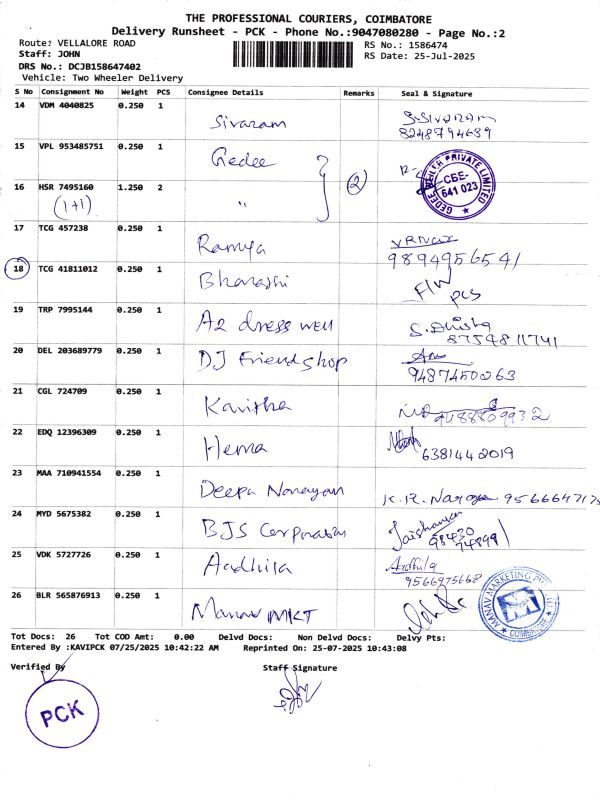 THE PROFESSIONAL COURIERS, COIMBATORE
Delivery Runsheet - PCK - Phone No.:9047080280 - Page No.:2
Route: VELLALORE ROAD RS No.: 1586474
Staff: JOHN RS Date: 25-Jul-2025
DRS No.: DCJB158647402
Vehicle: Two Wheeler Delivery
S No Consignment No Weight PCS Consignee Details Remarks Seal & Signature
14 VDM 4040825 0.250 1 Sivaram S.SIVARAM
8248794639
15 VPL 953485751 0.250 1 Gedee
16 HSR 7495160 1.250 2 " (2) GEDEE PRIVATE LIMITED CBE-641 023
(1+1)
17 TCG 457238 0.250 1 Ramya
9894956541
18 TCG 41811012 0.250 1 Bharathi F/W
pcs
19 TRP 7995144 0.250 1 A2 dress well
8754811741
20 DEL 203689779 0.250 1 DJ Friend shop
9487450063
21 CGL 724709 0.250 1 Kavitha 9488809932
22 EDQ 12396309 0.250 1 Hema 6381442019
23 MAA 710941554 0.250 1 Deepa Narayan K.R. 956664717
24 MYD 5675382 0.250 1 BJS Corporation Jaishankar
98430
74899
25 VDK 5727726 0.250 1 Aadhila Aadhila
9566975668
26 BLR 565876913 0.250 1 Manav MKT MANAV MARKETING COIMBATORE
Tot Docs: 26 Tot COD Amt: 0.00 Delvd Docs: Non Delvd Docs: Delvy Pts:
Entered By :KAVIPCK 07/25/2025 10:42:22 AM Reprinted On: 25-07-2025 10:43:08
Verified By Staff Signature
PCK